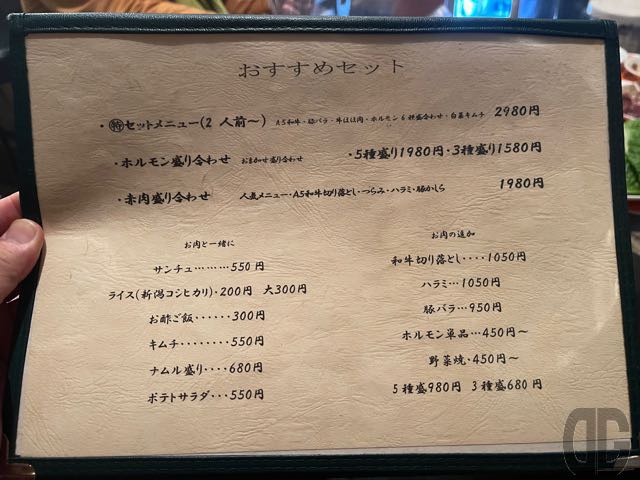 おすすめセット
・㊕セットメニュー(2 人前～) A5和牛・豚バラ・牛ほほ肉・ホルモン6種盛合わせ・白菜キムチ 2980円
・ホルモン盛り合わせ おまかせ盛り合わせ ・5種盛り1980円・3種盛り1580円
・赤肉盛り合わせ 人気メニュー・A5和牛切り落とし・つらみ・ハラミ・豚かしら 1980円
お肉と一緒に
サンチュ………550円
ライス(新潟コシヒカリ)・200円 大300円
お酢ご飯‥‥‥300円
キムチ‥‥‥‥550円
ナムル盛り‥‥680円
ポテトサラダ‥‥550円
お肉の追加
和牛切り落とし‥‥1050円
ハラミ…1050円
豚バラ…950円
ホルモン単品…450円～
野菜焼・450円～
5種盛980円 3種盛680円
DG